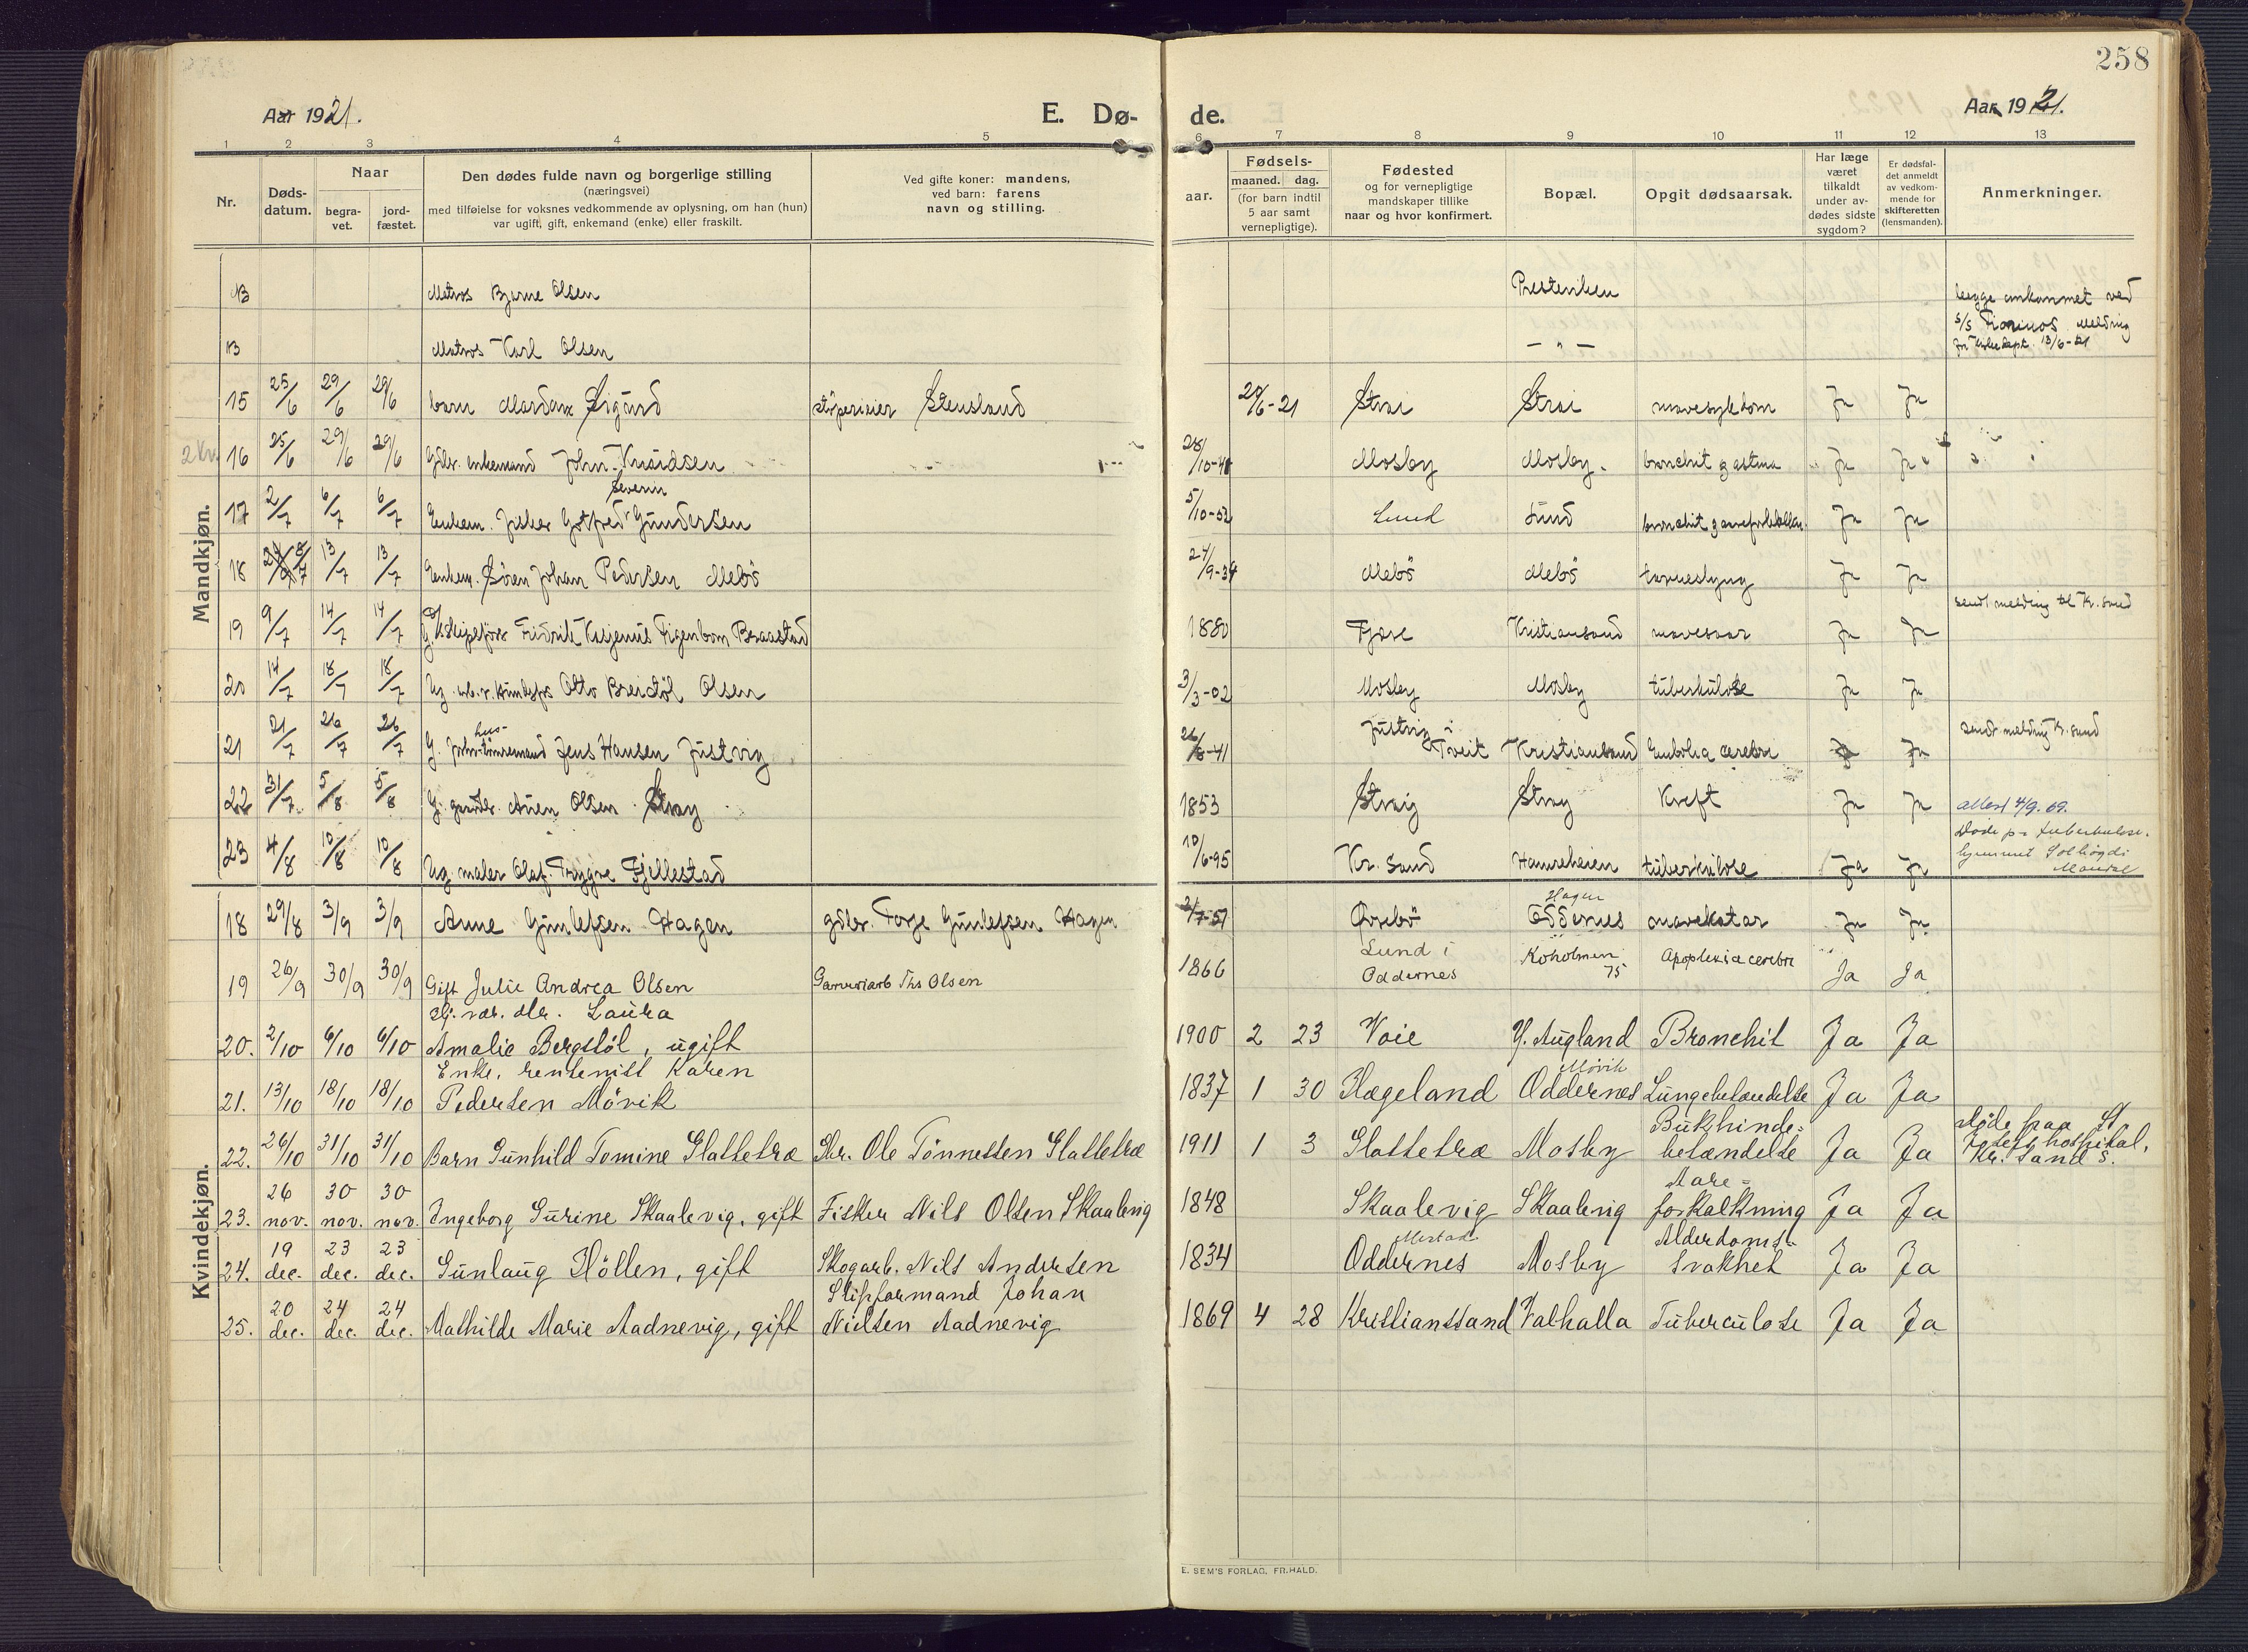 258
Aar 1921.
E. Dø-
de.
Aar 1921.
1 2 3 4 5 6 7 8 9 10 11 12 13
Nr.
Døds-
datum.
Naar
begra-
vet.
jord-
fæstet.
Den dødes fulde navn og borgerlige stilling
(næringsvei)
med tilføielse for voksnes vedkommende av oplysning, om han (hun)
var ugift, gift, enkemand (enke) eller fraskilt.
Ved gifte koner: mandens,
ved barn: farens
navn og stilling.
Fødsels-
aar.
maaned. dag.
(for barn indtil
5 aar samt
vernepligtige).
Fødested
og for vernepligtige
mandskaper tillike
naar og hvor konfirmert.
Bopæl.
Opgit dødsaarsak.
Har læge
været
tilkaldt
under av-
dødes sidste
sygdom?
Er dødsfal-
det anmeldt
av vedkom-
mende for
skifteretten
(lensmanden).
Anmerkninger.
Mandkjøn.
NB Matros Bjarne Olsen
begge omkommet ved
NB Matros Karl Olsen — " —
S/S Meldring
13/6-21
15 25/6 29/6 29/6 barn Sigurd Stensland 20/6-21 Strai Strai mavesykdom Ja Ja
2 Kv. 16 25/6 29/6 29/6 Gbr. enkemand John Knudsen 28/10-41 Mosby Mosby. bronchit g astma Ja Ja
Severin
17 2/7 6/7 6/7 Enkem. fisker Gotfred Gundersen 5/10-52 Lund Lund bronchit g Ja Ja
18 8/7 13/7 13/7 Enkem. Søren Johan Pedersen Mebö 24/9-34 Mebö Mebö Ja Ja
sendt melding til Kr.sand
19 9/7 14/7 14/7 G. Fredrik Braastad 1880 Fjære Kristiansand mavesaar Ja Ja
20 14/7 18/7 18/7 Ug. Otto Breidöl Olsen 3/3-02 Mosby Mosby tuberkulose Ja Ja
hus-
Justvig i
sendt melding Kr.sand
21 21/7 26/7 26/7 G. tömremand Jens Hansen Justvig 26/8-41 Tveit Kristiansand Embolia cerebri Ja Ja
22 31/7 5/8 5/8 G. gaardbr. Olsen Stray 1853 Straig Stray Kreft Ja Ja attest 4/9.69.
Døde på tuberkulose-
23 4/8 10/8 10/8 Ug. maler Olaf Trygve Fjellestad 10/6-95 Kr. Sand Hamreheien tuberkulose Ja Ja hjemmet Solhøgdi
Mandal
Kvindekjøn.
Hagen
18 29/8 3/9 3/9 Anne Gunlefsen Hagen gdbr. Torje Gunlefsen Hagen 2/7-51 Øvrebö Oddernes mavekatar Ja Ja
Lund i
19 26/9 30/9 30/9 Gift Julie Andrea Olsen Garveriarb Ths Olsen 1866 Oddernes Koholmen 75 Apoplexia cerebri Ja Ja
Laura
20. 2/10 6/10 6/10 Amalie Bergstöl, ugift 1900 2 23 Voie Y. Augland Bronchit Ja Ja
Enke, rentenist Karen
Møvik
21. 13/10 18/10 18/10 Pedersen Mövik 1837 1 30 Hægeland Oddernes Lungebetændelse Ja Ja
Bukhinde-
22. 26/10 31/10 31/10 Barn Gunhild Tomine Slattetræ Gbr. Ole Tönnessen Slattetræ 1911 1 3 Slattetræ Mosby betændelse Ja Ja
Døde paa St
Josefs hospital,
Kr.sand S.
26 30 30
Aare-
23. nov. nov. nov. Ingeborg Surine Skaalevig, gift Fisker Nils Olsen Skaalevig 1848 Skaalevig Skaalevig forkalkning Ja Ja
19 23 23
Mestad
Alderdoms-
24. dec. dec. dec. Gunlaug Höllen, gift Skogarb. Nils Andersen 1834 Oddernes Mosby svakhet Ja Ja
20 24 24
Slipformand Johan
25. dec. dec. dec. Mathilde Marie Aadnevig, gift Nielsen Aadnevig 1869 4 28 Kristianssand Valhalla Tuberculose Ja Ja
E. SEM'S FORLAG, FR.HALD.